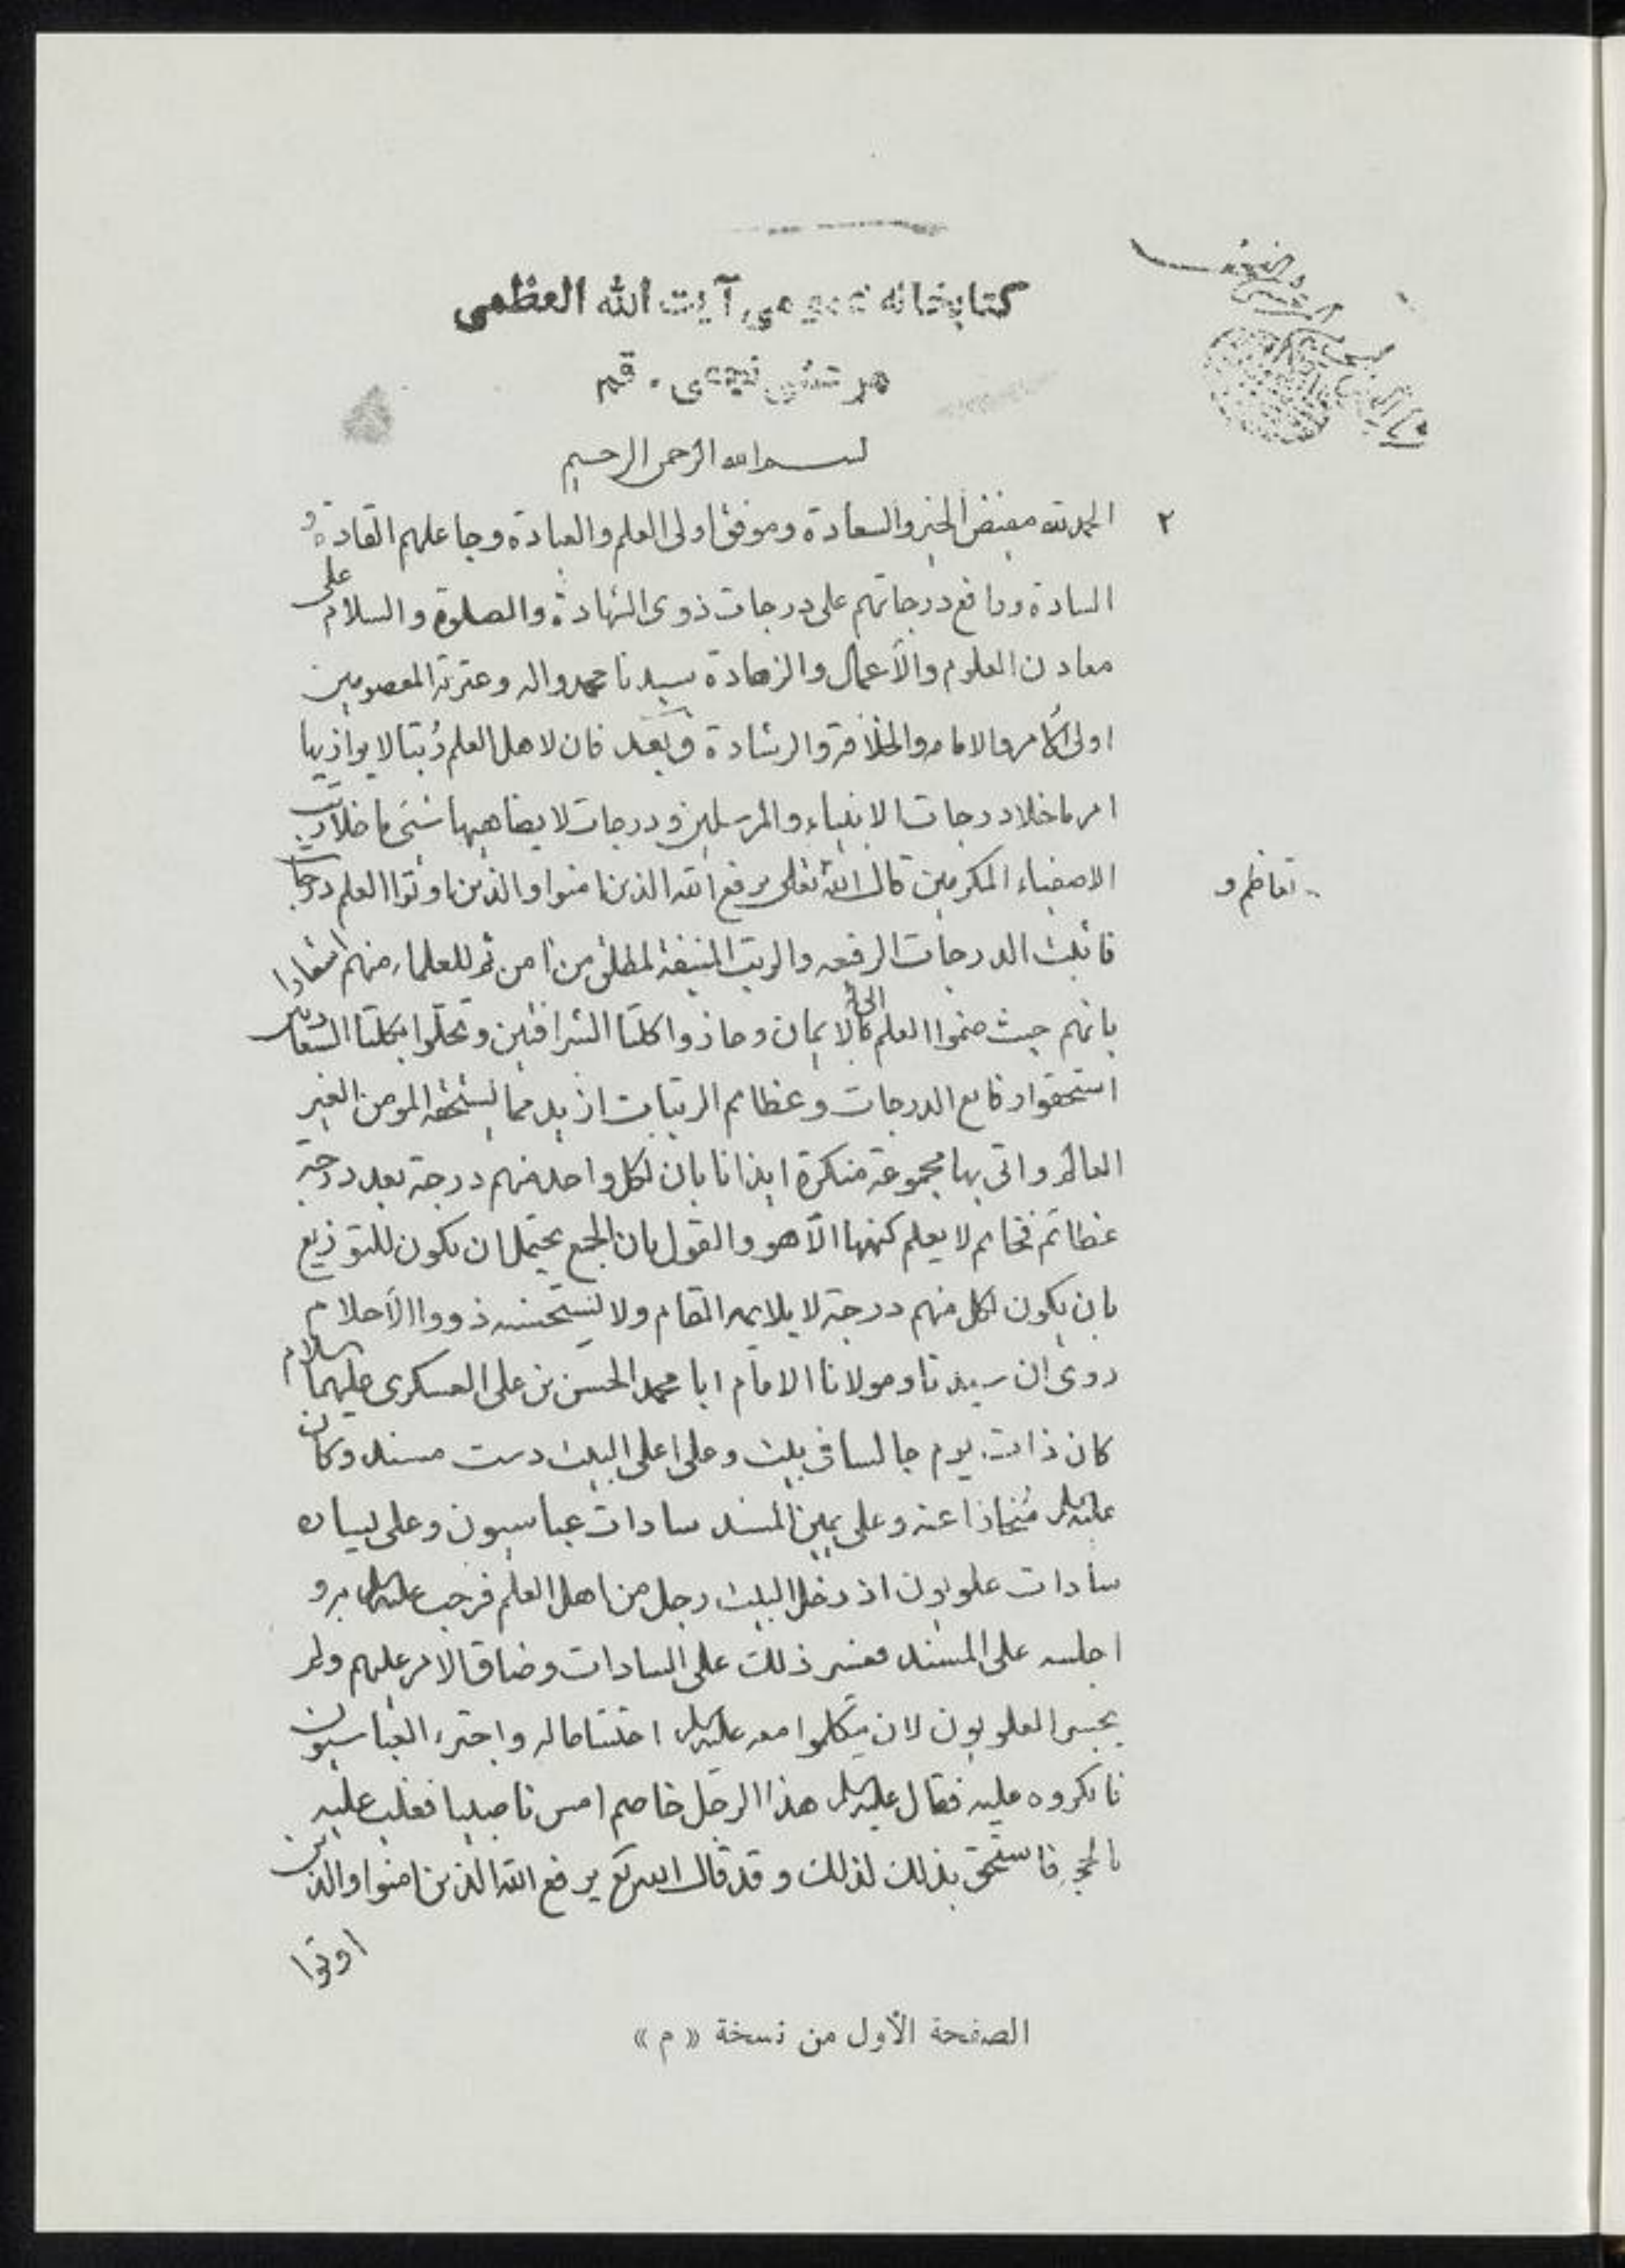 كتابخانه عمومى آيت الله العظمى
مرعشى نجفى - قم
بسم الله الرحمن الرحيم
٢
الحمد لله مفيض الخير والسعادة وموفق اولى العلم والعبادة وجاعلهم القادة و
السادة ورافع درجاتهم على درجات ذوى الشهادة والصلوة والسلام على
معادن العلوم والأعمال والزهادة سيدنا محمد واله وعترته المعصومين
اولى والامامه والخلافة والرشادة وبعد فان لاهل العلم رُتبا لا يوازيها
امر ما خلا درجات الانبياء والمرسلين ودرجات لا يضاهيها شئ ما خلا رتب
الاصفياء المكرمين قال الله تعالى يرفع الله الذين امنوا والذين اوتوا العلم درجات
تعاظم و
فاثبت الدرجات الرفيعه والرتب المنيفة لمطلق من امن ثم للعلماء منهم اشعارا
بانهم حيث ضموا العلم الى الايمان وحازوا كلتا الشرافتين وتحلّوا بكلتا السعادتين
استحقوا رفايع الدرجات وعظايم الرتبات ازيد مما يستحقه المومن الغير
العالم واتى بها مجموعة منكرة ايذانا بان لكل واحد منهم درجة بعد درجة
عظائم فخايم لا يعلم كنهها الّا هو والقول بان الجمع يحتمل ان يكون للتوزيع
بان يكون لكل منهم درجة لا يلايمه المقام ولا يستحسنه ذووا الأحلام
روى ان سيدنا ومولانا الامام ابا محمد الحسن بن على العسكرى عليهما السلام
كان ذات يوم جالسا فى بيت وعلى اعلى البيت دست مسند وكان
عليه السلام مُنحازا عنه وعلى يمين المسند سادات عباسيون وعلى يساره
سادات علويون اذ دخل البيت رجل من اهل العلم فرحب عليه السلام به و
اجلسه على المسند فعسر ذلك على السادات وضاق الامر عليهم ولم
يجسر العلويون لان يتكلموا معه عليه السلام احتشاما له واجترء العباسيون
فانكروه عليه فقال عليه السلام هذا الرجل خاصم امس ناصبيا فغلب عليه
بالحجة فاستحق بذلك لذلك وقد قال الله تع يرفع الله الذين امنوا والذين
اوتوا
الصفحة الأول من نسخة « م »